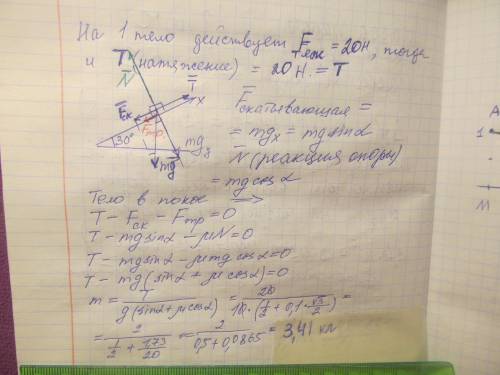 На 1 тело действует Fтяж = 20Н, тогда
и T (натяжение) = 20Н = T
N̅
T̅
x
F̅ск
Fтр
30°
mg
mgy
F̅скатывающая =
= mgx = mg sinα
N̅ (реакция опоры)
= mg cosα
Тело в покое ⟹
T - Fск - Fтр = 0
T - mg sinα - μN = 0
T - mg sinα - μmg cosα = 0
T - mg (sinα + μcosα) = 0
m = T / g(sinα + μcosα) = 20 / 10·(1/2 + 0,1·√3/2) =
= 2 / (1/2 + 1,73/20) = 2 / (0,5 + 0,0865) = 3,41 кг
A
1
M